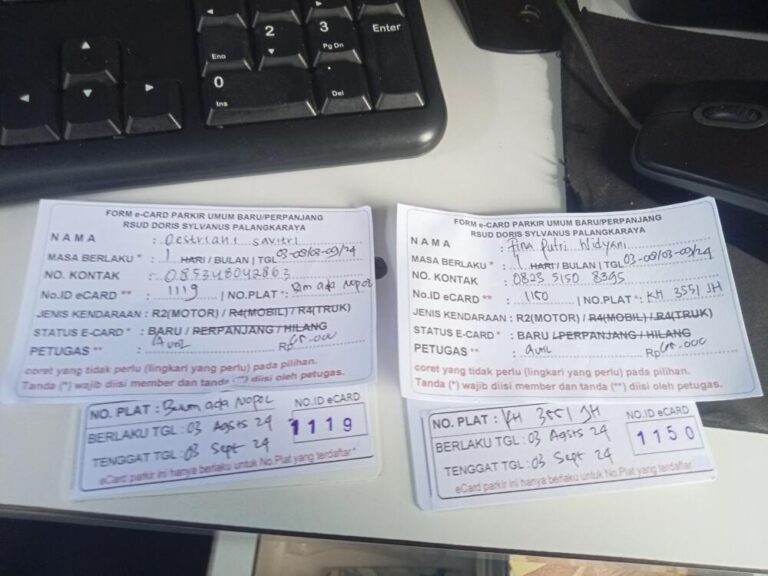 2
3
Enter
End
Pg Dn
0
Ins
.
Del
FORM e-CARD PARKIR UMUM BARU/PERPANJANG
RSUD DORIS SYLVANUS PALANGKARAYA
NAMA : Oestriani savitri
MASA BERLAKU * : 1 HARI / BULAN | TGL 03-08/03-09/24
NO. KONTAK : 085348042863
No.ID eCARD ** : 1119 | NO.PLAT * : Blm ada nopol
JENIS KENDARAAN : R2(MOTOR) / R4(MOBIL) / R4(TRUK)
STATUS E-CARD * : BARU / PERPANJANG / HILANG
PETUGAS ** : Avril Rp .000
coret yang tidak perlu (lingkari yang perlu) pada pilihan.
Tanda (*) wajib diisi member dan tanda (**) diisi oleh petugas.
NO. PLAT : Belum ada Nopol
NO.ID eCARD
BERLAKU TGL : 03 Agsts 24
1119
TENGGAT TGL : 03 Sept 24
eCard parkir ini hanya berlaku untuk No.Plat yang terdaftar
FORM e-CARD PARKIR UMUM BARU/PERPANJANG
RSUD DORIS SYLVANUS PALANGKARAYA
NAMA : Putri Widyani
MASA BERLAKU * : 1 HARI / BULAN | TGL 03-08/03-09/24
NO. KONTAK : 0823 5150 8395
No.ID eCARD ** : 1150 | NO.PLAT * : KH 3551 JH
JENIS KENDARAAN : R2(MOTOR) / R4(MOBIL) / R4(TRUK)
STATUS E-CARD * : BARU / PERPANJANG / HILANG
PETUGAS ** : avril Rp .000
coret yang tidak perlu (lingkari yang perlu) pada pilihan.
Tanda (*) wajib diisi member dan tanda (**) diisi oleh petugas.
NO. PLAT : KH 3551 JH
NO.ID eCARD
BERLAKU TGL : 03 Agsts 24
1150
TENGGAT TGL : 03 Sept 24
eCard parkir ini hanya berlaku untuk No.Plat yang terdaftar